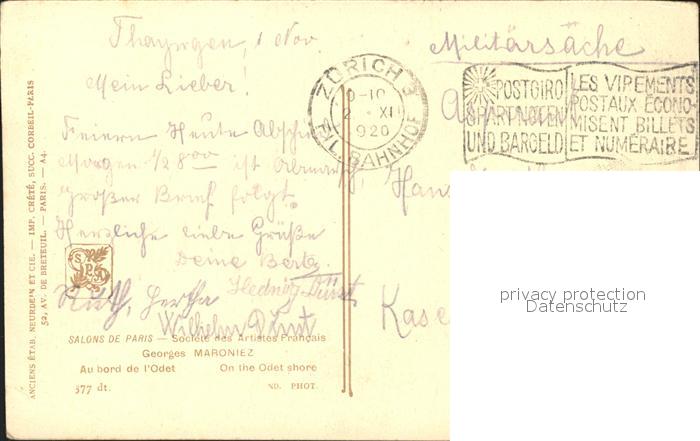 Thayngen, 1 Nov.
Mein Lieber!
Feiern Heute Abschied
Morgen 1/2 8 00 ist Abmarsch,
Großer Brief folgt.
Herzliche liebe Grüße
Deine Berta.
Ruth, Hertha Hedwig Dürst
Wilhelm Dürst
Militärsache
ZÜRICH 3
9-10
2. XI
1920
FIL. BAHNHOF
POSTGIRO
SPART NOTEN
UND BARGELD
LES VIREMENTS
POSTAUX ECONO-
MISENT BILLETS
ET NUMÉRAIRE
Hans
Kase
privacy protection
Datenschutz
SPA
SALONS DE PARIS — Société des Artistes Français
Georges MARONIEZ
Au bord de l'Odet On the Odet shore
377 dt. ND. PHOT.
ANCIENS ÉTAB. NEURDEIN ET CIE. — IMP. CRÉTÉ, SUCC. CORBEIL-PARIS
52, AV. DE BRETEUIL. — PARIS. — A4.